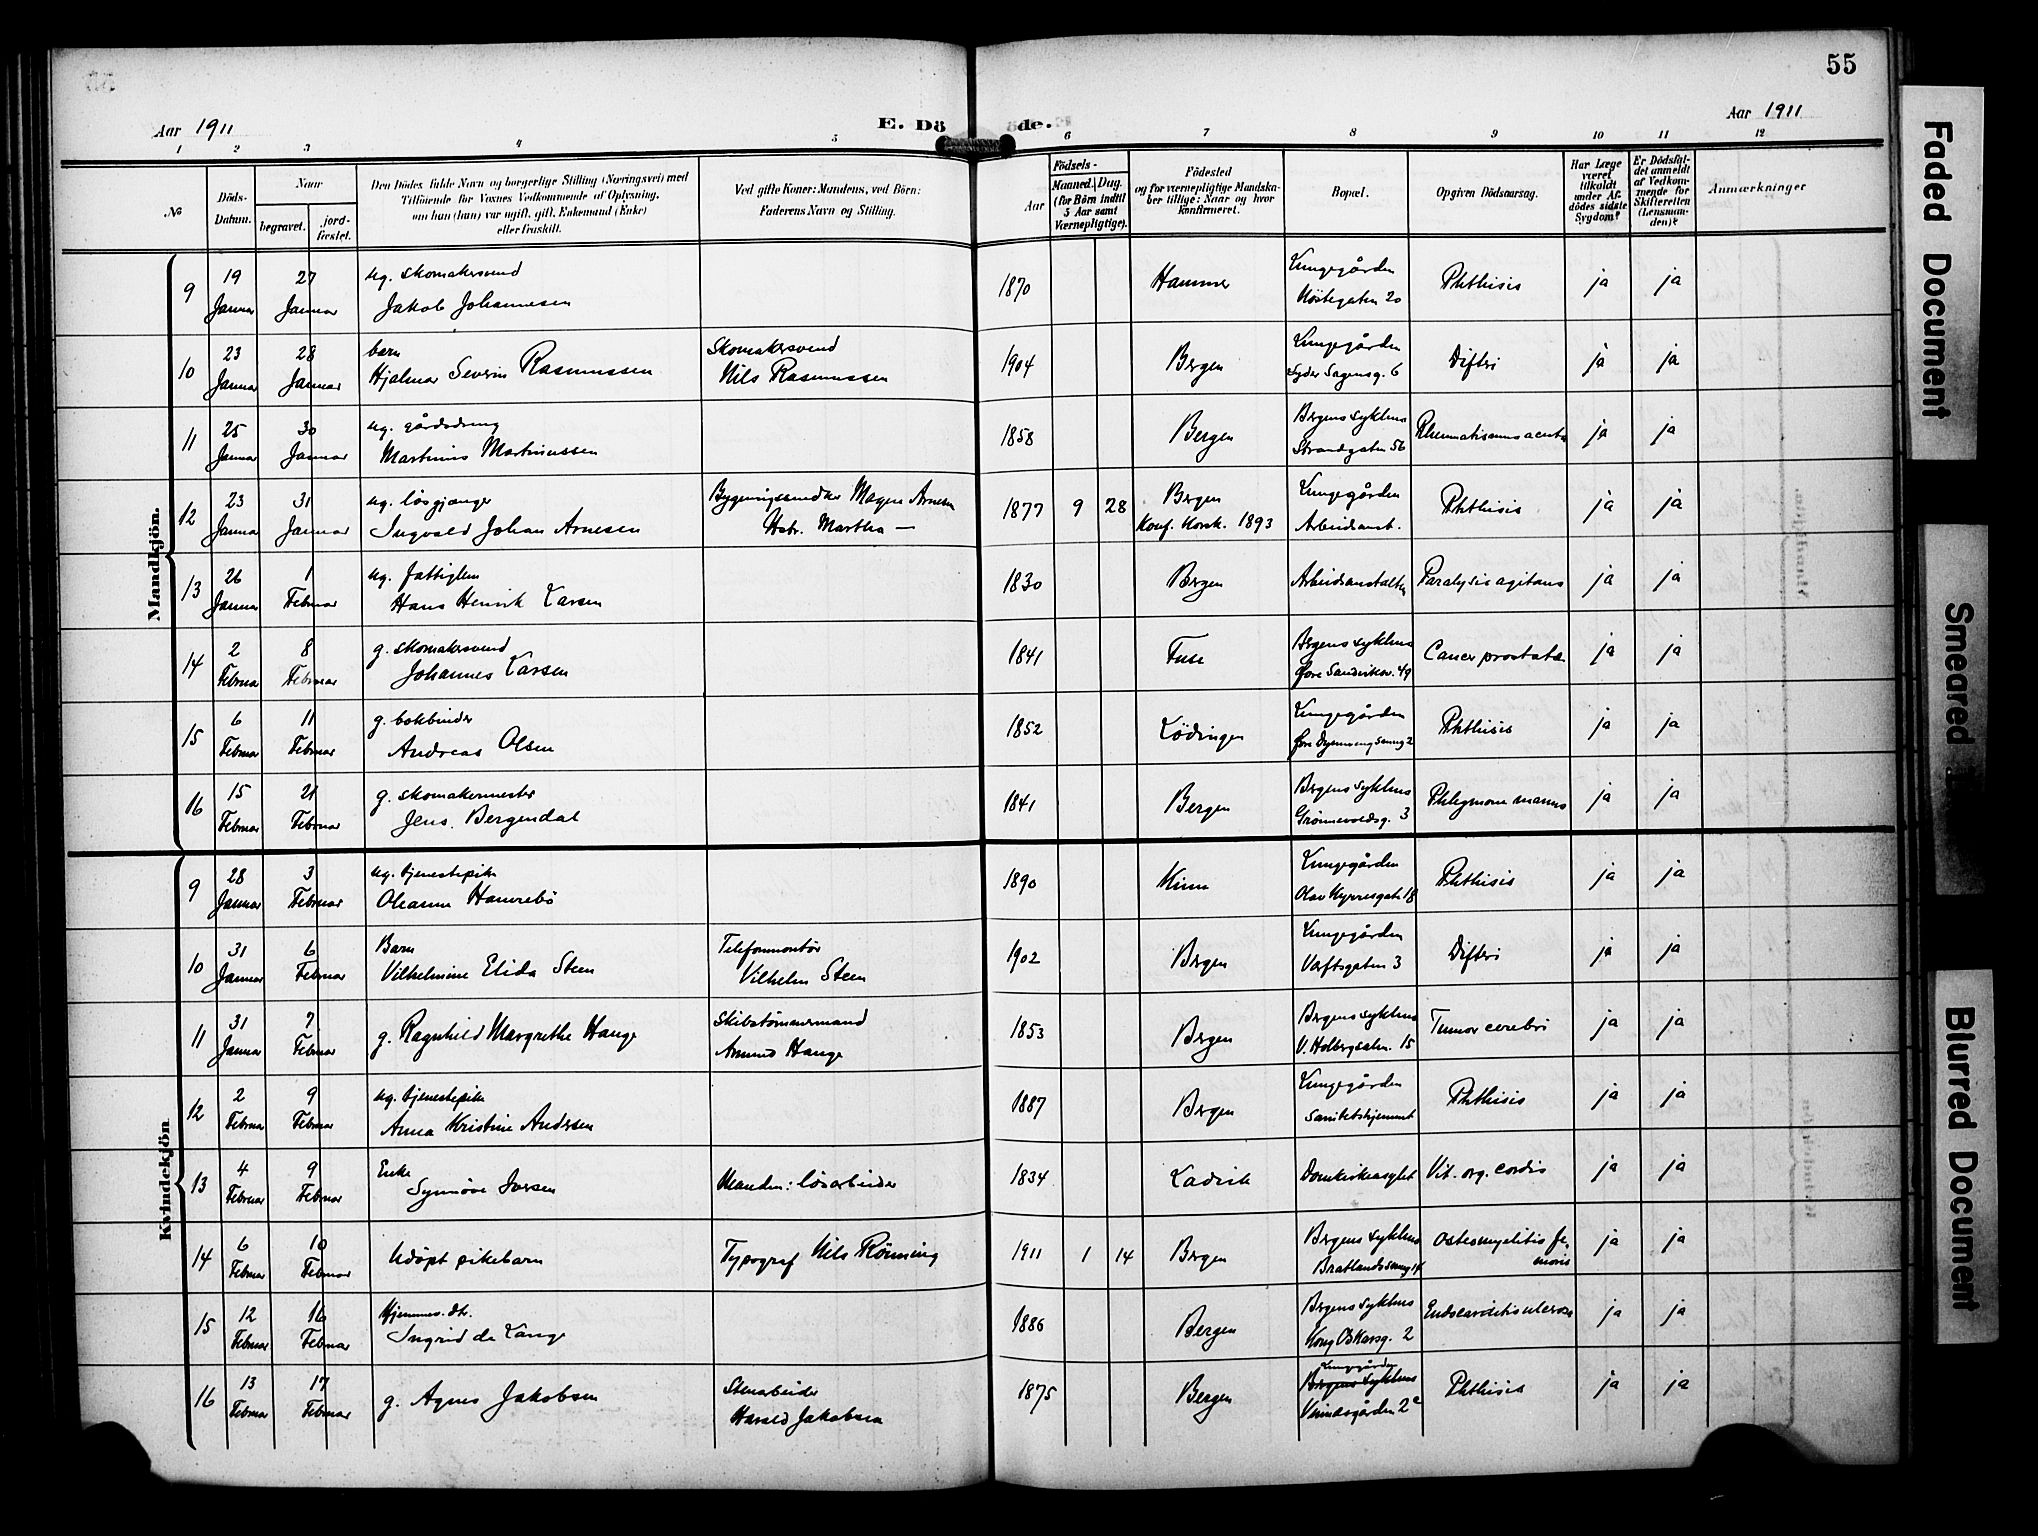 55
Aar 1911
E. Dö
de.
Aar 1911
1 2 3 4 5 6 7 8 9 10 11 12
№
Döds-
Datum.
Naar
begravet.
jord-
fæstet.
Den Dödes fulde Navn og borgerlige Stilling (Næringsvei) med
Tilföiende for Voxnes Vedkommende af Oplysning,
om han (hun) var ugift, gift, Enkemand (Enke)
eller fraskilt.
Ved gifte Koner: Mandens, ved Börn:
Faderens Navn og Stilling.
Födsels-
Aar
Maaned. Dag.
(for Börn indtil
5 Aar samt
Værnepligtige).
Födested
og for værnepligtige Mandska-
ber tillige: Naar og hvor
konfirmeret.
Bopæl.
Opgiven Dödsaarsag.
Har Læge
været
tilkaldt
under Af-
dödes sidste
Sygdom?
Er Dödsfal-
det anmeldt
af Vedkom-
mende for
Skifteretten
(Lensman-
den)?
Anmærkninger
Mandkjön.
9 19 Januar 27 Januar ug. skomakersvend Jakob Johannesen 1870 Hammer Lungegården Nöstegaten 20 Phthisis ja ja
10 23 Januar 28 Januar barn Hjalmar Severin Rasmussen Skomakersvend Nils Rasmussen 1904 Bergen Lungegården Lyder Sagensg. 6 Difteri ja ja
11 25 Januar 30 Januar ug. gårdsdreng Martinus Martinussen 1858 Bergen Bergens sykehus Strandgaten 56 Rheumatismus acutus ja ja
12 23 Januar 31 Januar ug. løsgjænger Ingvald Johan Arnesen Arnesen Hstr. Martha — 1877 9 28 Bergen Konf. Korsk. 1893 Lungegården Arbeidsanst. Phthisis ja ja
13 26 Januar 1 Februar ug. fattiglem Hans Henrik Larsen 1830 Bergen Arbeidsanstalten Paralysis agitans ja ja
14 2 Februar 8 Februar g. skomakersvend Johannes Larsen 1841 Fuse Bergens sykehus Øvre Sandviksv. 49 Cancer prostatæ ja ja
15 6 Februar 11 Februar g. bokbinder Andreas Olsen 1852 Lödingen Lungegården Phthisis ja ja
16 15 Februar 21 Februar g. skomakermester Jens Bergendal 1841 Bergen Bergens sykehus Grönnevoldsg. 3 Phlegmone manus ja ja
Kvindekjön
9 28 Januar 3 Februar ug. tjenestepike Oleanna Hamrebö 1890 Kinn Lungegården Olav Kyrresgate 18 Phthisis ja ja
10 31 Januar 6 Februar Barn Vilhelmine Elida Steen Telefonmontör Vilhelm Steen 1902 Bergen Lungegården Verftsgaten 3 Difteri ja ja
11 31 Januar 7 Februar g. Ragnhild Margrethe Hauge Skibstömmermand Amund Hauge 1853 Bergen Bergens sykehus V. Holbergsalm. 15 Tumor cerebri ja ja
12 2 Februar 9 Februar ug. tjenestepike Anna Kristine Andersen 1887 Bergen Lungegården Sanitetshjemmet Phthisis ja ja
13 4 Februar 9 Februar Enke Synnöve Iversen Manden: lösarbeider 1834 Ladvik Domkirkeasylet Vit. org. cordis ja ja
14 6 Februar 10 Februar Udöpt pikebarn Typograf Nils Rönning 1911 1 14 Bergen Bergens sykehus Bratlandssmug 14 Osteomyelitis femoris ja ja
15 12 Februar 16 Februar Hjemmev. dtr. Ingrid de Lange 1886 Bergen Bergens sykehus Kong Oskarsg. 2 Endocarditis ulcerosa ja ja
16 13 Februar 17 Februar g. Agnes Jakobsen Stenarbeider Harald Jakobsen 1875 Bergen Lungegården Bergens sykehus 2c Phthisis ja ja
Faded Document
Smeared
Blurred Document